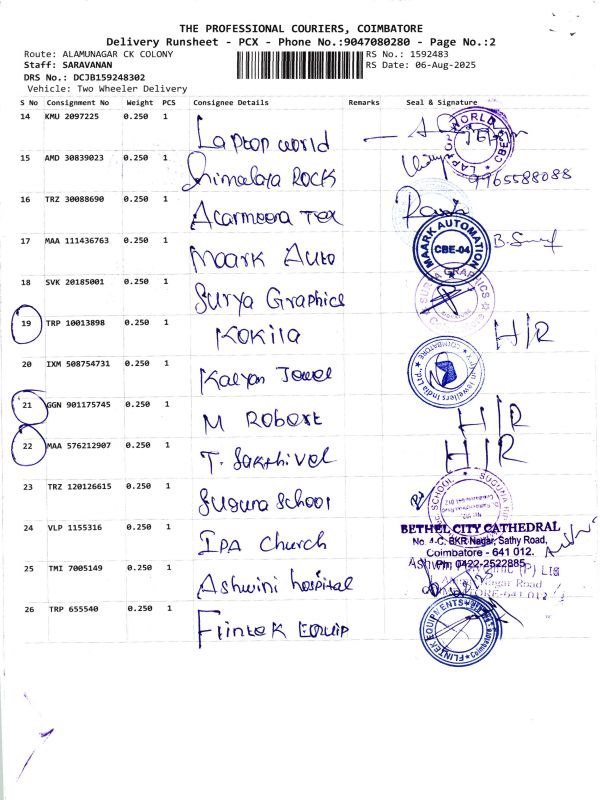 THE PROFESSIONAL COURIERS, COIMBATORE
Delivery Runsheet - PCX - Phone No.:9047080280 - Page No.:2
Route: ALAMUNAGAR CK COLONY RS No.: 1592483
Staff: SARAVANAN RS Date: 06-Aug-2025
DRS No.: DCJB159248302
Vehicle: Two Wheeler Delivery
S No Consignment No Weight PCS Consignee Details Remarks Seal & Signature
14 KMU 2097225 0.250 1 Laptop world
LAPTOP WORLD CBE
15 AMD 30839023 0.250 1 Himalaya ROCK 9965588088
16 TRZ 30088690 0.250 1 Acarmoera Tex
17 MAA 111436763 0.250 1 Maark Auto
MAARK AUTOMATION CBE-04
18 SVK 20185001 0.250 1 Surya Graphics
SURYA GRAPHICS
19 TRP 10013898 0.250 1 Kokila H/R
20 IXM 508754731 0.250 1 Kalyan Jewel
Kalyan Jewellers India Ltd., COIMBATORE
21 GGN 901175745 0.250 1 M Robert H/R
22 MAA 576212907 0.250 1 T. Sakthivel H/R
23 TRZ 120126615 0.250 1 Suguna School
SUGUNA SCHOOL
24 VLP 1155316 0.250 1 IPA Church
BETHEL CITY CATHEDRAL
No. 4-C, BKR Nagar, Sathy Road,
Coimbatore - 641 012.
Ph: 0422-2522885
25 TMI 7005149 0.250 1 Ashwini hospital
26 TRP 655540 0.250 1 Flintek Equip
FLINTEK EQUIPMENTS Coimbatore